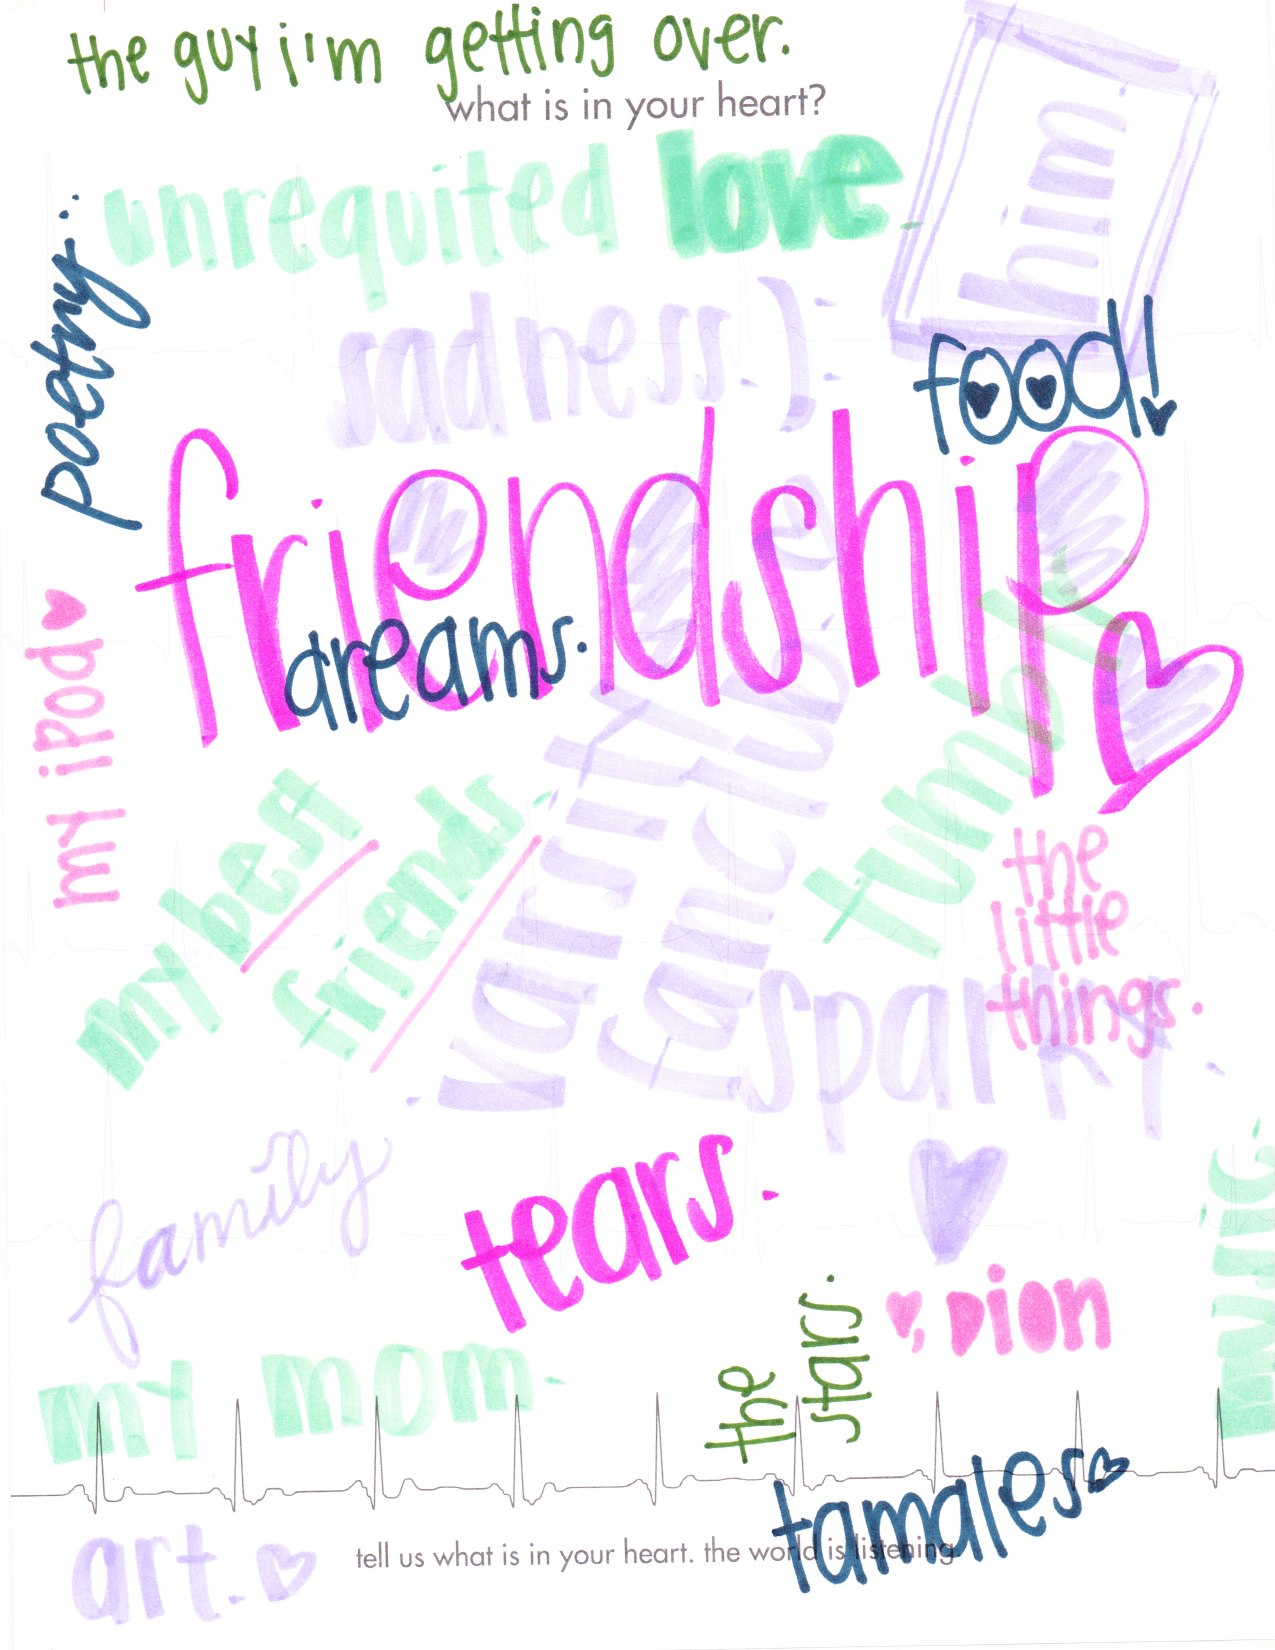 the guy i'm getting over.
what is in your heart?
unrequited love.
him.
poetry...
sadness. ):
food!
friendship
dreams.
my ipod
my best
friends.
varsity
fanclub.
tumblr
the
little
things.
sparky.
family
tears.
music.
, Dion
my mom.
the
stars.
tamales
art.
tell us what is in your heart. the world is listening.